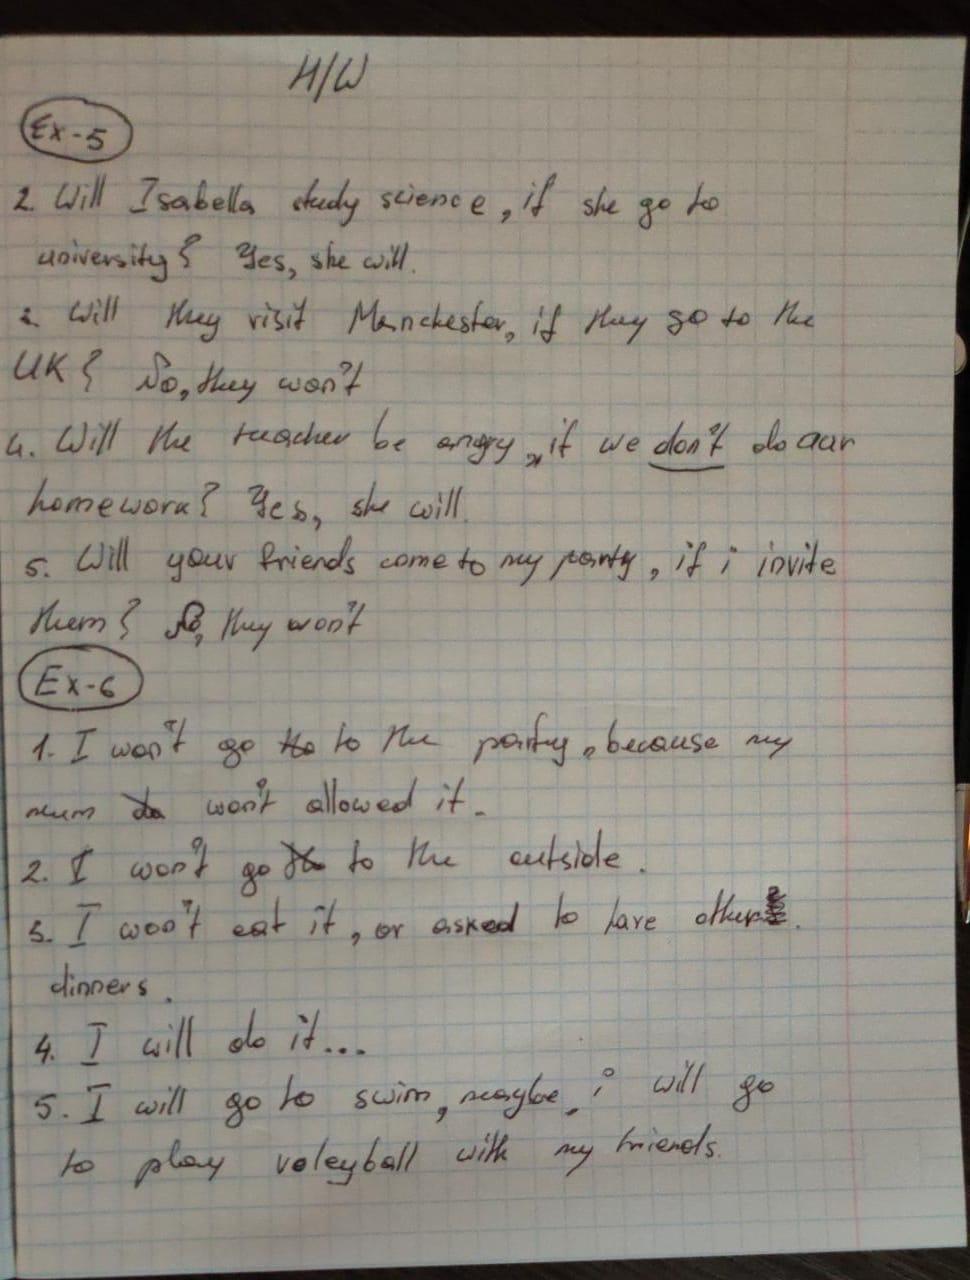 H/W
Ex-5
2. Will Isabella study science, if she go to
university? Yes, she will.
3. Will they visit Manchester, if they go to the
UK? No, they won't
4. Will the teacher be angry, if we don't do our
homework? Yes, she will.
5. Will your friends come to my party, if i invite
them? No, they won't
Ex-6
1. I won't go to the party, because my
mum won't allowed it.
2. I won't go to the outside.
3. I won't eat it, or asked to have other.
dinners.
4. I will do it...
5. I will go to swim, maybe, i will go
to play voleyball with my friends.